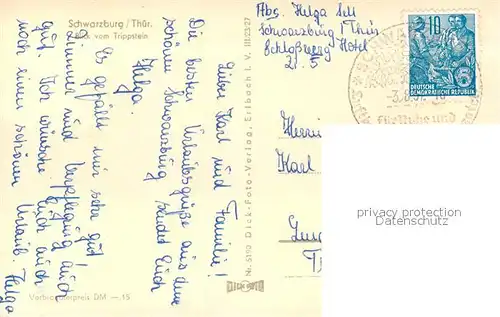 Schwarzburg / Thür.
Blick vom Trippstein
Lieber Karl und Familie!
Die besten Urlaubsgrüße aus dem
schönen Schwarzburg sendet Euch
Helga.
Es gefällt mir sehr gut!
Zimmer und Verpflegung auch
gut. Ich wünsche Euch auch
noch einen schönen Urlaub. Helga
Verbraucherpreis DM —.15
Nr. 5190 Dick-Foto-Verlag, Erlbach i. V. III/23/27
DICK FOTO
Abs. Helga
Schwarzburg / Thür
Schloßberg Hotel
Zi. 5
10
DEUTSCHE
DEMOKRATISCHE REPUBLIK
für Ruhe und
Herrn
Karl
privacy protection
Datenschutz